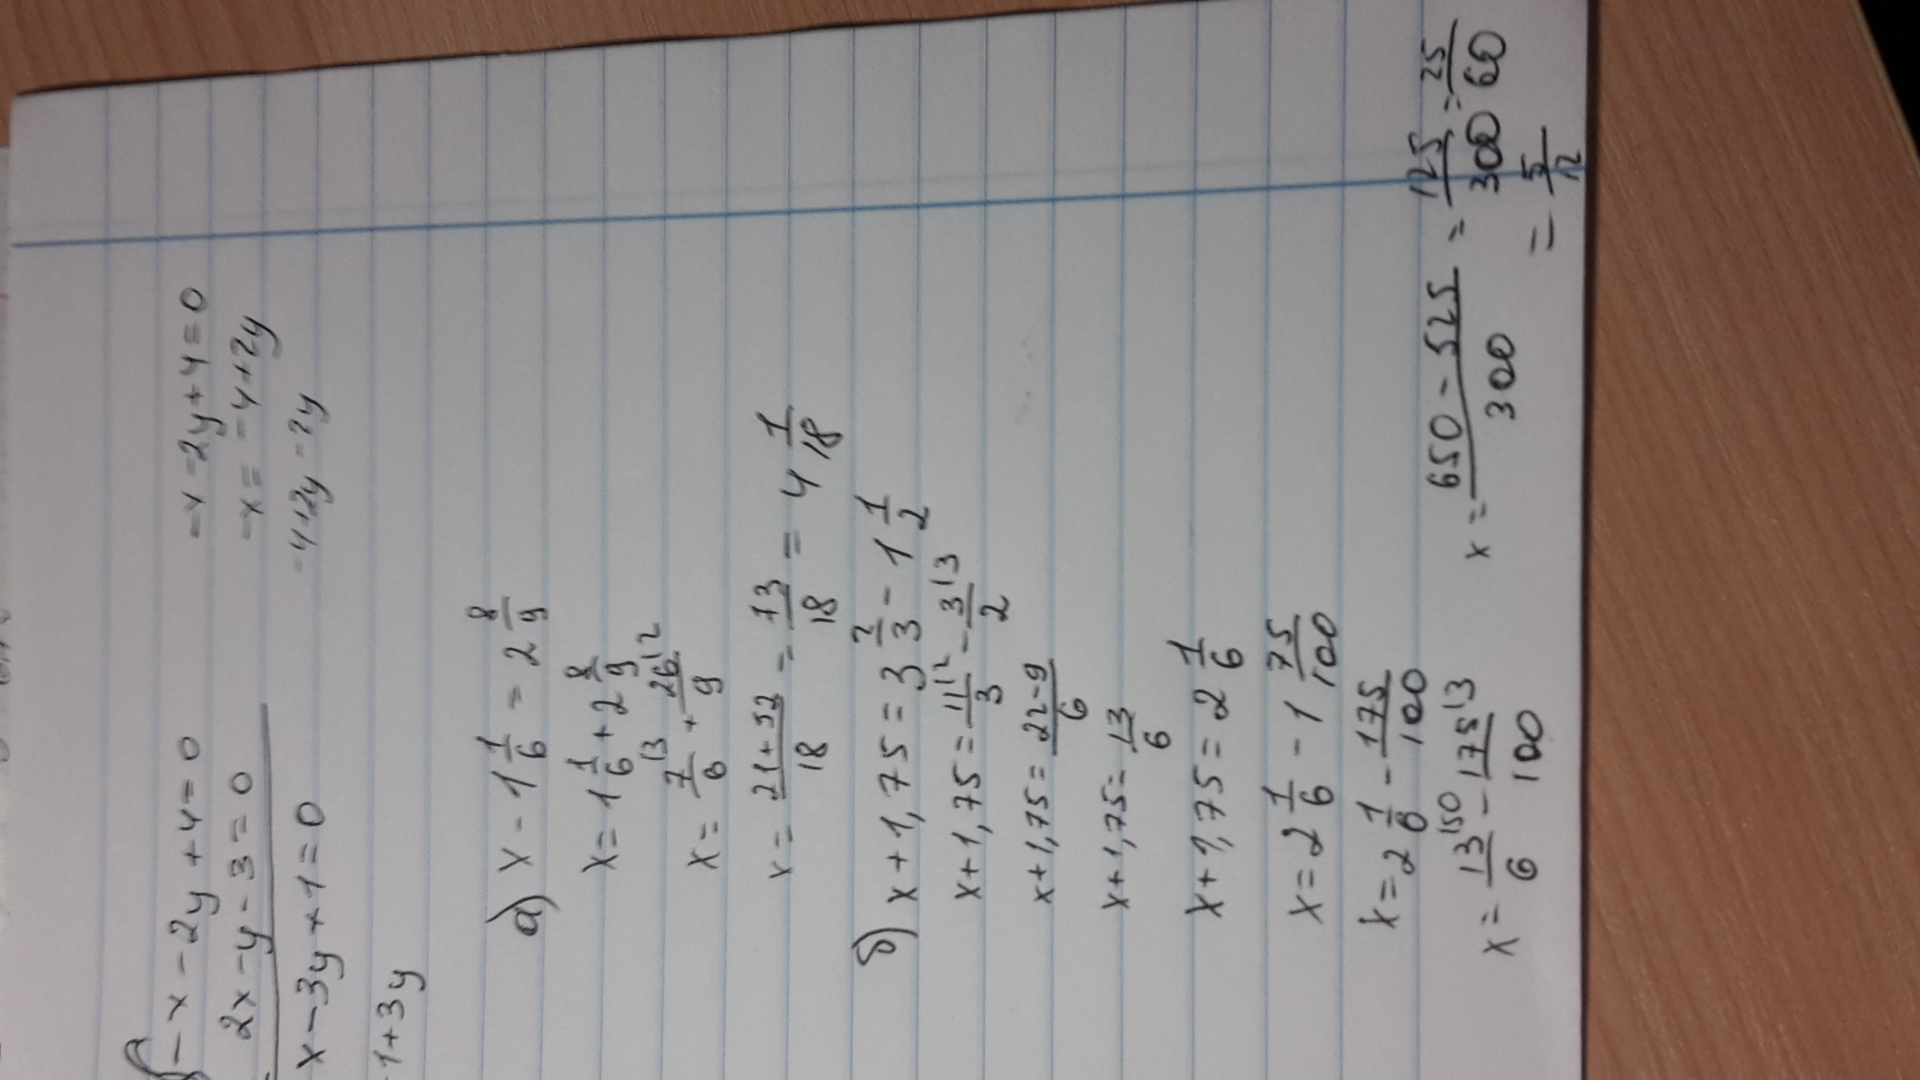 { -x-2y+4=0
2x-y-3=0
x-3y+1=0
1+3y
-x-2y+4=0
-x=-4+2y
-4+2y-2y
а) x-1 1/6=2 8/9
x=1 1/6+2 8/9
x=7/6 |3 + 26/9 |2
x=(21+52)/18=73/18=4 1/18
б) x+1,75=3 2/3-1 1/2
x+1,75=11/3 |2 - 3/2 |3
x+1,75=(22-9)/6
x+1,75=13/6
x+1,75=2 1/6
x=2 1/6-1 75/100
x=2 1/6-175/100
x=13/6 |50 - 175/100 |3
x=(650-525)/300=125/300=25/60
=5/12